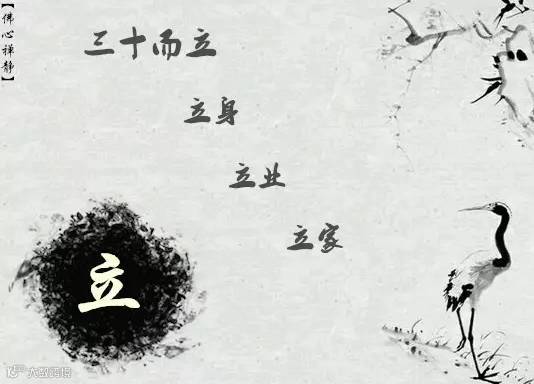 【佛心禅静】
三十而立
立身
立业
立家
立